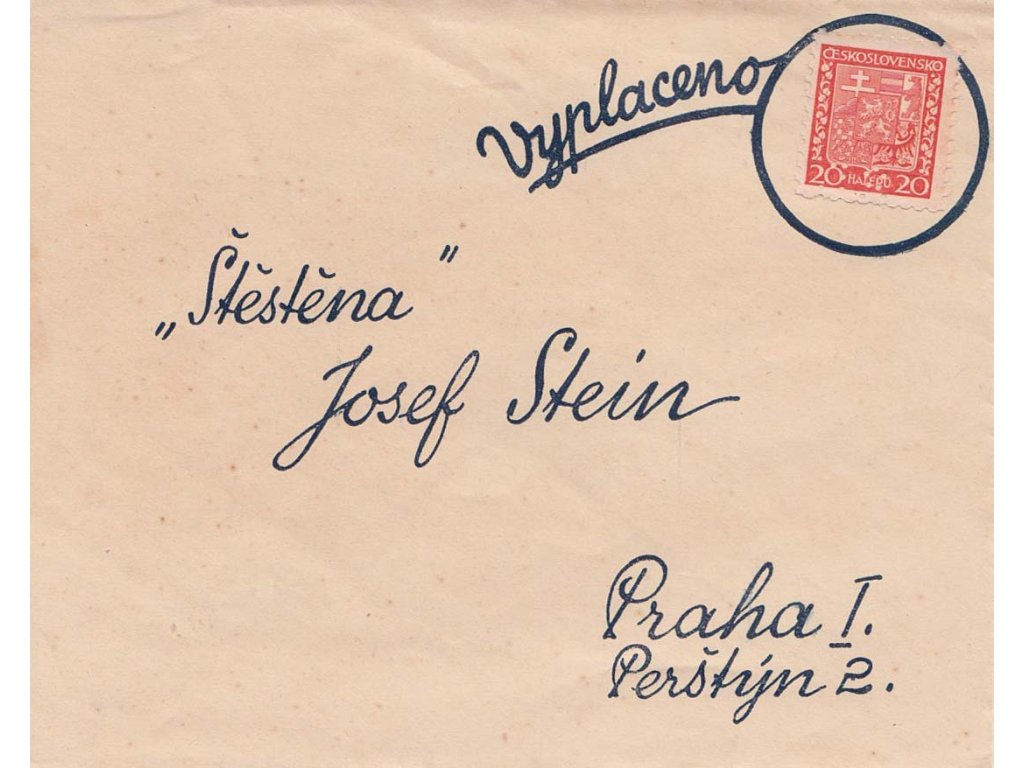 Vyplaceno
ČESKOSLOVENSKO
20 HALÉŘŮ 20
„Štěstěna"
Josef Stein
Praha I.
Perštýn 2.